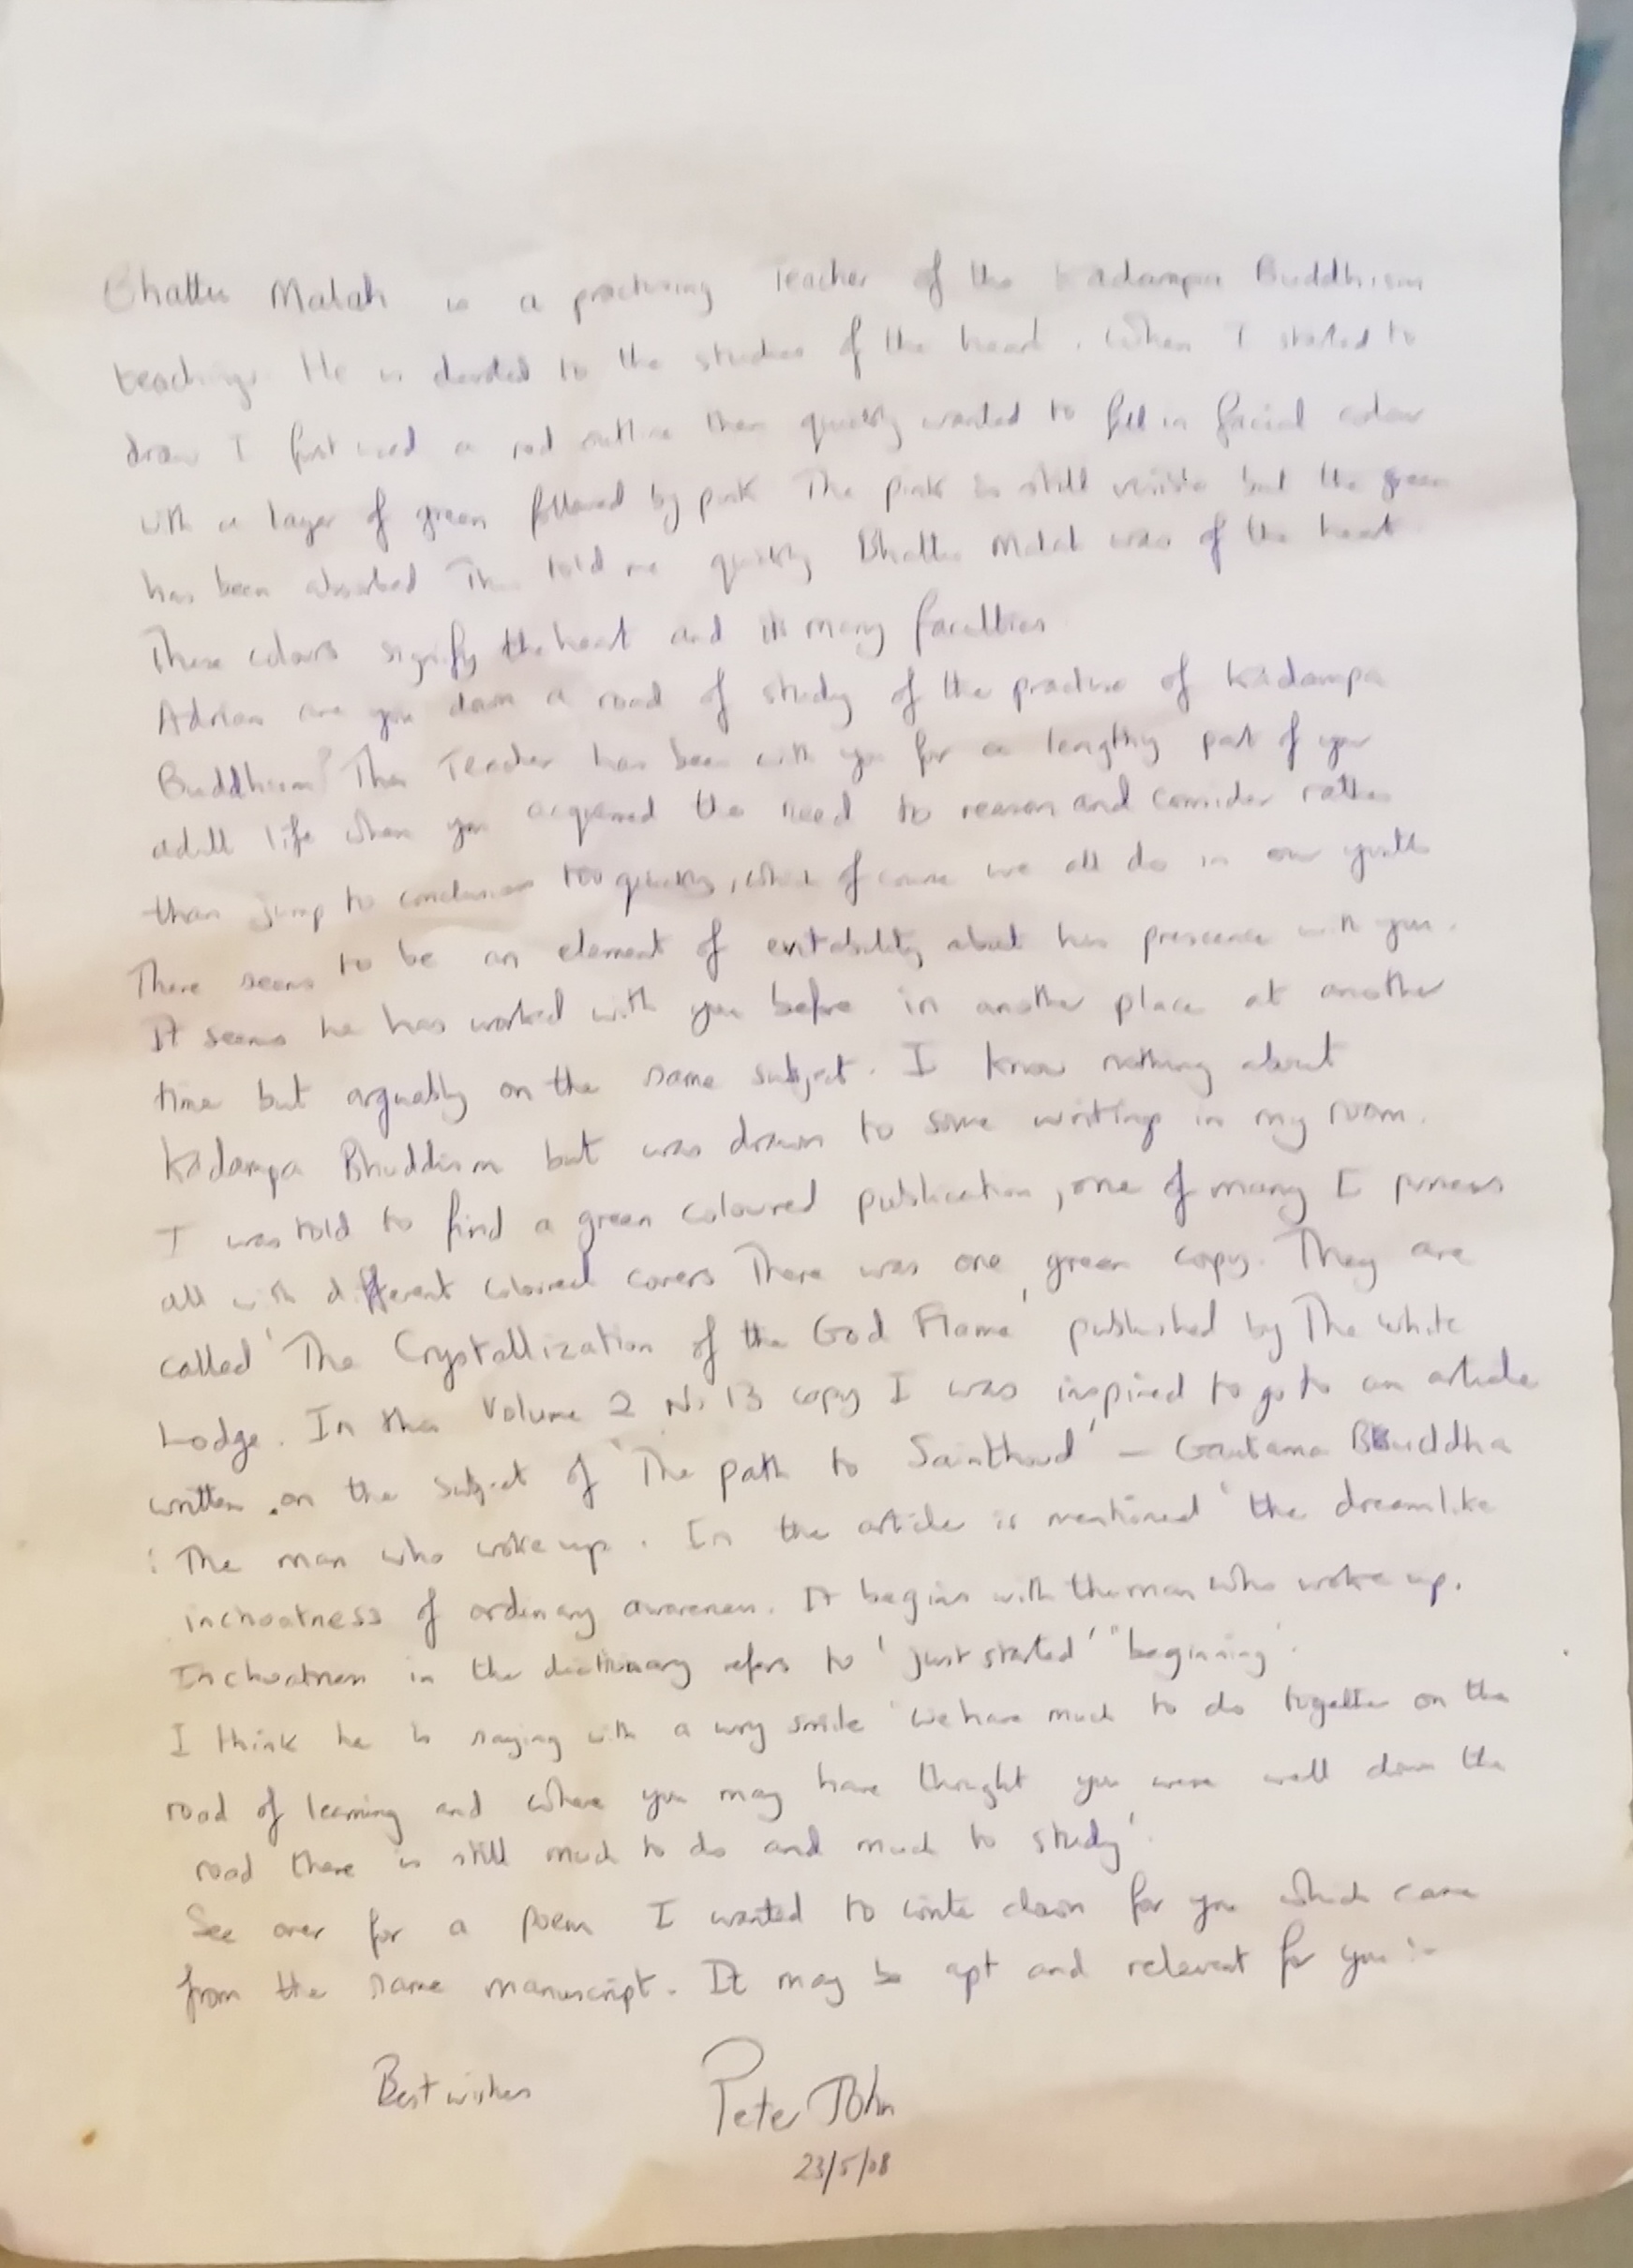 Bhatta Malah is a practising Teacher of the Kadampa Buddhism
teachings. He is devoted to the studies of the heart. When I started to
draw I first used a red outline then quickly wanted to fill in facial colour
with a layer of green followed by pink The pink is still visible but the green
has been absorbed This told me quickly Bhatta Malah was of the heart.
These colours signify the heart and its many faculties
Adrian are you down a road of study of the practise of Kadampa
Buddhism? This Teacher has been with you for a lengthy part of your
adult life when you acquired the need to reason and consider rather
than jump to conclusions too quickly, which of course we all do in our youth
There seems to be an element of about his prescence with you.
It seems he has worked with you before in another place at another
time but arguably on the same subject. I know nothing about
Kadampa Bhuddism but was drawn to some writings in my room.
I was told to find a green coloured publication, one of many I possess
all with different coloured covers There was one green copy. They are
called 'The Crystallization of the God Flame' published by The White
Lodge. In this Volume 2 No 13 copy I was inspired to go to an article
written on the subject of 'The path to Sainthood' – Gautama Buddha
: The man who woke up. In the article is mentioned 'the dreamlike
inchoatness of ordinary awareness. It begins with the man who woke up.
Inchoatness in the dictionary refers to 'just started' "beginning'.
I think he is saying with a wry smile 'we have much to do together on the
road of learning and where you may have thought you were well down the
road there is still much to do and much to study'.
See over for a poem I wanted to write down for you which came
from the same manuscript. It may be apt and relevant for you :-
Best wishes Peter John
23/5/08